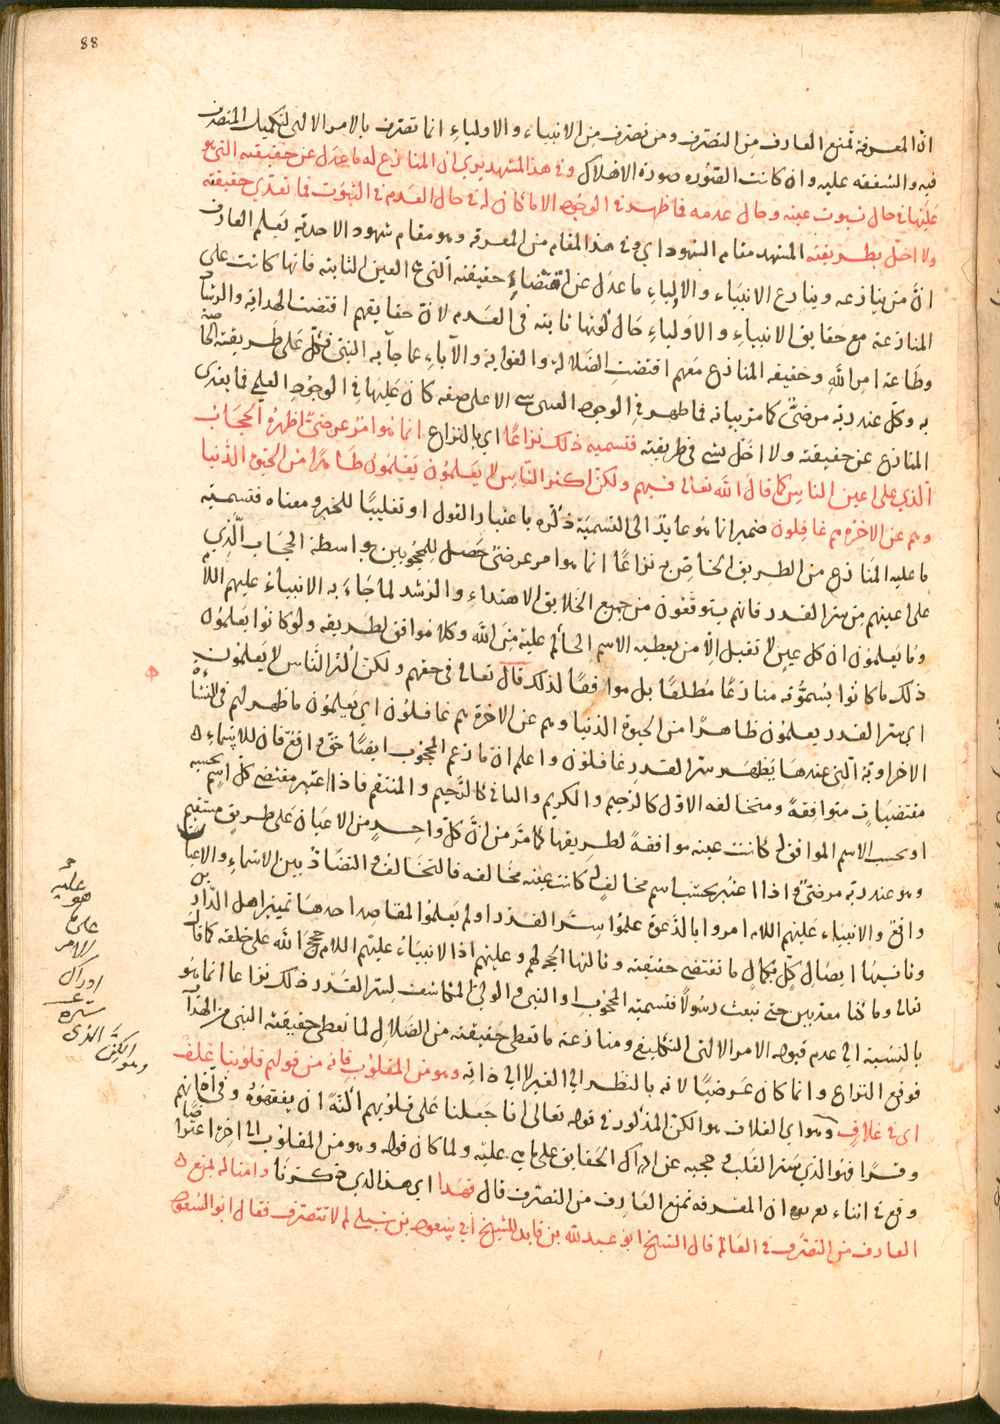 88
انّ المعرفة تمنع العارف من التصرف ومن تصرف من الانبياء والاولياء انما تصرف بالامر الالهى لتكميل المتصرف
فيه والشفقه عليه وان كانت الصوره صورة الاهلاك وفى هذا المشهد يرى ان المنازع له ما عدل عن حقيقته التى هو
عليها فى حال ثبوت عينه وحال عدمه فما ظهر فى الوجود الا ما كان له فى حال العدم فى الثبوت فما تعدى حقيقته
ولا اخل بطريقته المشهد مقام الشهود اى وفى هذا المقام من المعرفة وهو مقام شهود الاحدية يعلم العارف
انّ من ينازعه وينازع الانبياء والاولياء ما عدل عن اقتضاء حقيقته التى هى العين الثابته فانها كانت على
المنازعة مع حقايق الانبياء والاولياء حال كونها ثابته فى العدم لانّ حقايقهم اقتضت الهداية والرشاد
وطاعة امر الله وحقيقه المنازع معهم اقتضت الضلالة والغواية والآباء عما جآء به النبى فكل على طريقته الخاصة
به وكل عند ربه مرضىّ كما مر بيانه فما ظهر فى الوجود العينى شى الا على صفه كان عليها فى الوجود العلمى فما تعدى
المنازع عن حقيقته ولا اخل بشى فى طريقته فتسميه ذلك نزاعًا اى بالنزاع انما هو امر عرضى اظهره الحجاب
الذى على اعين الناس كما قال الله تعالى فيهم ولكن اكثر الناس لا يعلمون يعلمون ظاهرًا من الحيوة الدنيا
وهم عن الاخرة هم غافلون ضمير انما هو عايد الى التسمية ذكره باعتبار القول او تغليبًا للخبر ومعناه فتسمية
ما عليه المنازع من الطريق الخاص به نزاعًا انما هو امر عرضى حصل للمحجوبين بواسطة الحجاب الذى
على اعينهم من سر القدر فانهم يتوقعون من جميع الخلايق الاهتداء والرشد لما جاء به الانبياء عليهم السلام
وما يعلمون ان كل عين لا تقبل الا من يعطيه الاسم الحاكم عليه من الله وكلا موافق لطريقه ولو كانوا يعلمون
ذلك ما كانوا يسموّنه منازعًا مطلقًا بل موافقًا لذلك قال تعالى فى حقهم ولكن اكثر الناس لا يعلمون
اى سر القدر يعلمون ظاهرًا من الحيوة الدنيا وهم عن الاخرة هم غافلون اى يعلمون ما ظهر لهم فى النشأة
الاخراوية التى عندها يظهر سر القدر غافلون واعلم ان ما زعم المحجوب ايضًا حق واقع فان للاسماء
مقتضيات متوافقة ومتخالفه الاول كالرحيم والكريم والثانى كالرحيم والمنتقم فاذا اعتبر مقتضى كل اسم بحسبه
او بحسب الاسم الموافق له كانت عينه موافقة لطريقها كما مرّ من انّ كل واحد من الاعيان على طريق مستقيم
وهو عند ربه مرضىّ واذا اعتبر بحسب اسم مخالف له كانت عينه مخالفه فالتخالف والتضاد بين الاسماء والاعيان
واقع والانبياء عليهم السلام امروا بالدعوة علموا سر القدر او لم يعلموا لمقاصد احدها تميز اهل الدارين
وثانيها ايصال كل بكمال ما تقتضى حقيقته وثالثها الحجة لهم وعليهم اذا الانبياء عليهم السلام حجج الله على خلقه كما قال
تعالى وما كنا معذبين حتى نبعث رسولًا فتسمية المحجوب او النبى والولى المكاشف لسر القدر ذلك نزاعا انما هو
بالنسبة الى عدم قبوله الامر الالهى التكليفى ومنازعة ما تعطى حقيقته من الضلال لما تعطى حقيقة النبى من الهداية
فوقع النزاع وانما كان عرضيًّا لانه بالنظر الى الغير لا الى ذاته وهو من المقلوب فانه من قولهم قلوبنا غلف
اى فى غلاف وهو اى الغلاف هو الكنّ المذكور فى قوله تعالى انا جعلنا على قلوبهم اكنّة ان يفقهوه وفى آذانهم
وقرًا فهو الذى ستر القلب وحجبه عن ادراك الحقايق على ما هى عليه ولما كان قوله وهو من المقلوب الى اخره اعتراضًا
وقع فى اثناء تقريره ان المعرفه تمنع العارف من التصرف قال فهذا اى هذا الذى ذكرنا وامثاله يمنع
العارف من التصرف فى العالم قال الشيخ ابو عبد الله بن قايد للشيخ ابى السعود بن شبلى لم لا تتصرف فقال ابو السعود
عليه
هو
على
الامر
ادراك
عن
ستره
الكن الذى
وهو